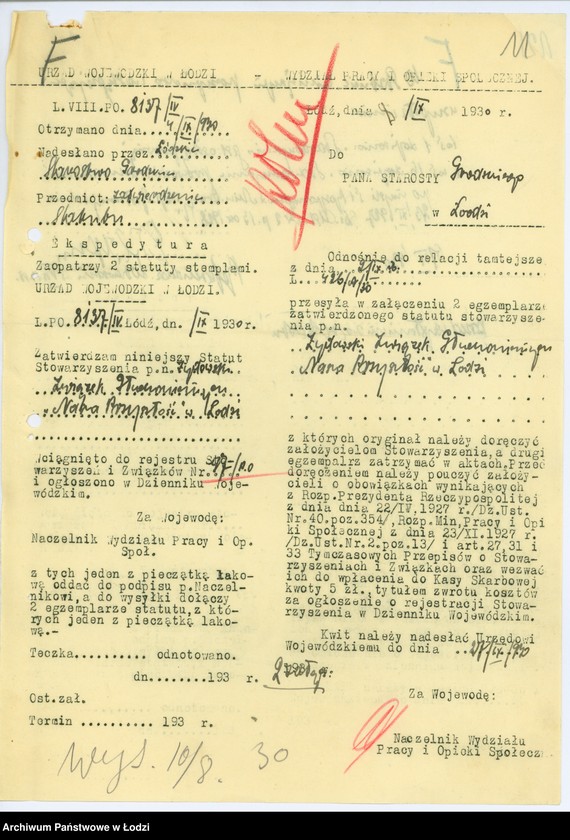 F
11
URZĄD WOJEWÓDZKI W ŁODZI - WYDZIAŁ PRACY I OPIEKI SPOŁECZNEJ.
L.VIII.PO. 8137/IV
Otrzymano dnia 4/IX/930
Nadesłano przez
Starostwo Grodzkie
Przedmiot: zatwierdzenie
Statutu
Ekspedytura
Zaopatrzy 2 statuty stemplami.
URZĄD WOJEWÓDZKI W ŁODZI.
L.PO. 8137/IV Łódź, dn. /IX 1930 r.
Zatwierdzam niniejszy Statut
Stowarzyszenia p.n. Żydowski
Związek
"Nasza Przyszłość" w Łodzi
Wciągnięto do rejestru Sto
warzyszeń i Związków Nr.
i ogłoszono w Dzienniku Woje-
wódzkim.
Za Wojewodę:
Naczelnik Wydziału Pracy i Op.
Społ.
z tych jeden z pieczątką lako-
wą oddać do podpisu p.Naczel-
nikowi, a do wysyłki dołączy
2 egzemplarze statutu, z któ-
rych jeden z pieczątką lako-
wą.-
Teczka.......... odnotowano.
dn........193 r.
Ost.zał.
Termin .......... 193 r.
Wys. 10/8. 30
Łódź, dnia 8/IX 1930 r.
Do
PANA STAROSTY Grodzkiego
w Łodzi
Odnośnie do relacji tamtejsze
z dnia 2/IX
L.
przesyła w załączeniu 2 egzemplarze
zatwierdzonego statutu stowarzysze-
nia p.n.
Żydowski Związek
"Nasza Przyszłość" w Łodzi
z których oryginał należy doręczyć
założycielom Stowarzyszenia, a drugi
egzemplarz zatrzymać w aktach. Przed
doręczeniem należy pouczyć założy-
cieli o obowiązkach wynikających
z Rozp.Prezydenta Rzeczypospolitej
z dnia dnia 22/IV,1927 r./Dz.Ust.
Nr.40.poz.354/,Rozp.Min,Pracy i Opi
ki Społecznej z dnia 23/XI.1927 r.
/Dz.Ust.Nr.2.poz.13/ i art.27,31 i
33 Tymczasowych Przepisów o Stowa-
rzyszeniach i Związkach oraz wezwać
ich do wpłacenia do Kasy Skarbowej
kwoty 5 zł., tytułem zwrotu kosztów
za ogłoszenie o rejestracji Stowa-
rzyszenia w Dzienniku Wojewódzkim.
Kwit należy nadesłać Urzędowi
Wojewódzkiemu do dnia 27/IX.930
Za Wojewodę:
Naczelnik Wydziału
Pracy i Opieki Społecz
Archiwum Państwowe w Łodzi